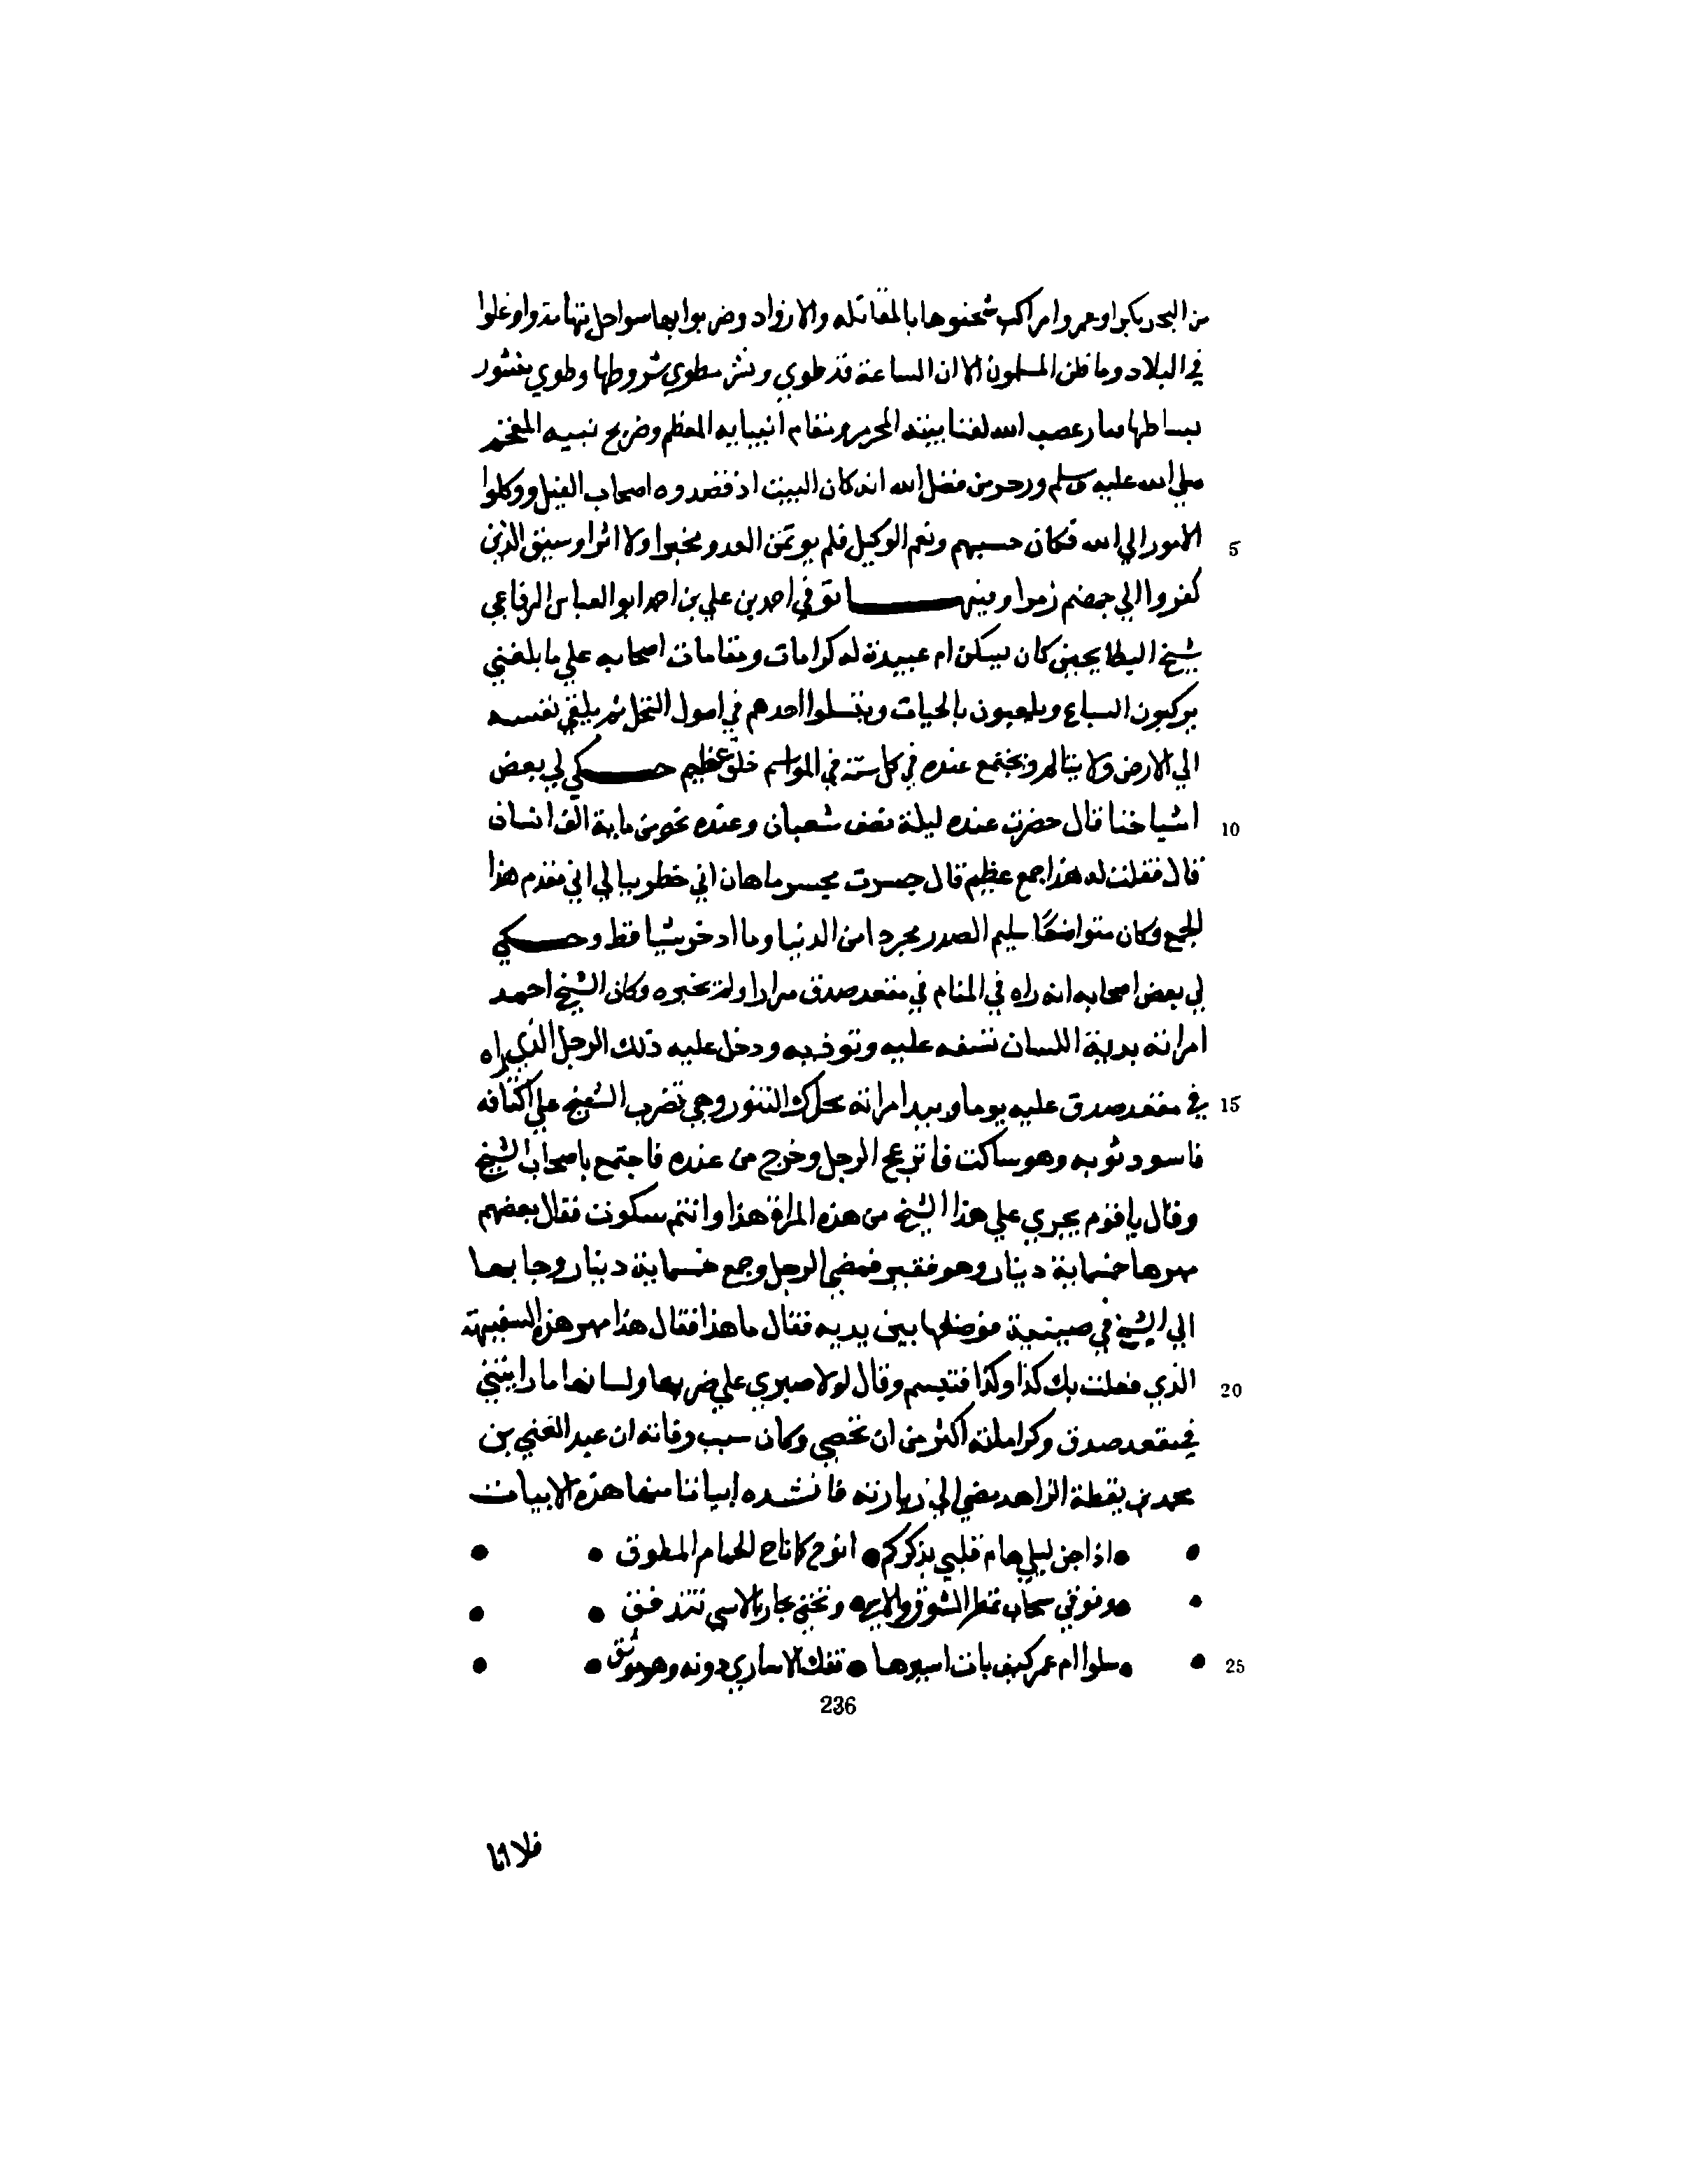 من البحر بكرا وعمروا مراكب شحنوها بالمقاتله والازواد وضربوا بها سواحل تهامة واوغلوا
في البلاد وما ظن المسلمون الا ان الساعة قد طوي ونشر مطوي شروطها وطوي منشور
بساطها عصب الله لفنا بيته المحرم ومقام انبيايه المعظم وضريح نبيه المفخم
صلي الله عليه وسلم من فضل الله انه كان البيت اذ قصدوه اصحاب الفيل ووكلوا
الامور الي الله فكان حسبهم ونعم الوكيل فلم العدو مخبرا ولا اثرا وسيق الذين 5
كفروا الي جهنم زمرا وفيها توفي احمد بن علي بن احمد ابو العباس الرفاعي
شيخ البطايحيين كان يسكن ام عبيدة له كرامات ومقامات اصحابه علي ما بلغني
يركبون السباع ويلعبون بالحيات احدهم في اصول النخل ثم يلقي نفسه
الي الارض ولا يتالم ويجتمع عنده في كل سنة في المواسم خلق عظيم حكي لي بعض
اشياخنا قال حضرت عنده ليلة نصف شعبان وعنده نحو من ماية الف انسان 10
قال فقلت له هذا جمع عظيم قال حسرت محسر هامان اني خطر ببالي اني مقدم هذا
الجمع وكان متواضعًا سليم الصدر مجردا من الدنيا وما ادخر شيا قط وحكي
لي بعض اصحابه انه راه في المنام في مقعد صدق مرارا ولم يخبره وكان الشيخ احمد
امراته بدية اللسان تسفه عليه وتوذيه ودخل عليه ذلك الرجل الذي راه
في مقعد صدق عليه يوما وبيد امراته محراك التنور وهي تضرب الشيخ علي اكتافه 15
فاسود ثوبه وهو ساكت فانزعج الرجل وخرج من عنده فاجتمع باصحاب الشيخ
وقال يا قوم يجري علي هذا الشيخ من هذه المراة هذا وانتم سكوت فقال بعضهم
مهرها خمسماية دينار وهو فقير فمضي الرجل وجمع خمسماية دينار وجا بها
الي الشيخ في صينية فوضعها بين يديه فقال ما هذا فقال هذا مهر هذه السفيهة
الذي فعلت بك كذا وكذا فتبسم وقال لولا صبري علي ضربها ولسانها ما رايتني 20
في مقعد صدق وكراماته اكثر من ان تحصي وكان سبب وفاته ان عبد الغني بن
محمد بن نقطة الزاهد مضي الي زيارته فانشده ابياتا منها هذه الابيات
• اذا جن ليلي هام قلبي بذكركم • انوح كما ناح الحمام المطوق •
• وفوقي سحاب تمطر الشوق والاسي • وتحتي بحار بالاسي تتدفق •
• سلوا ام عمر كيف بات اسيرها • تفك الاساري دونه وهو موثق • 25
236
فلا انا